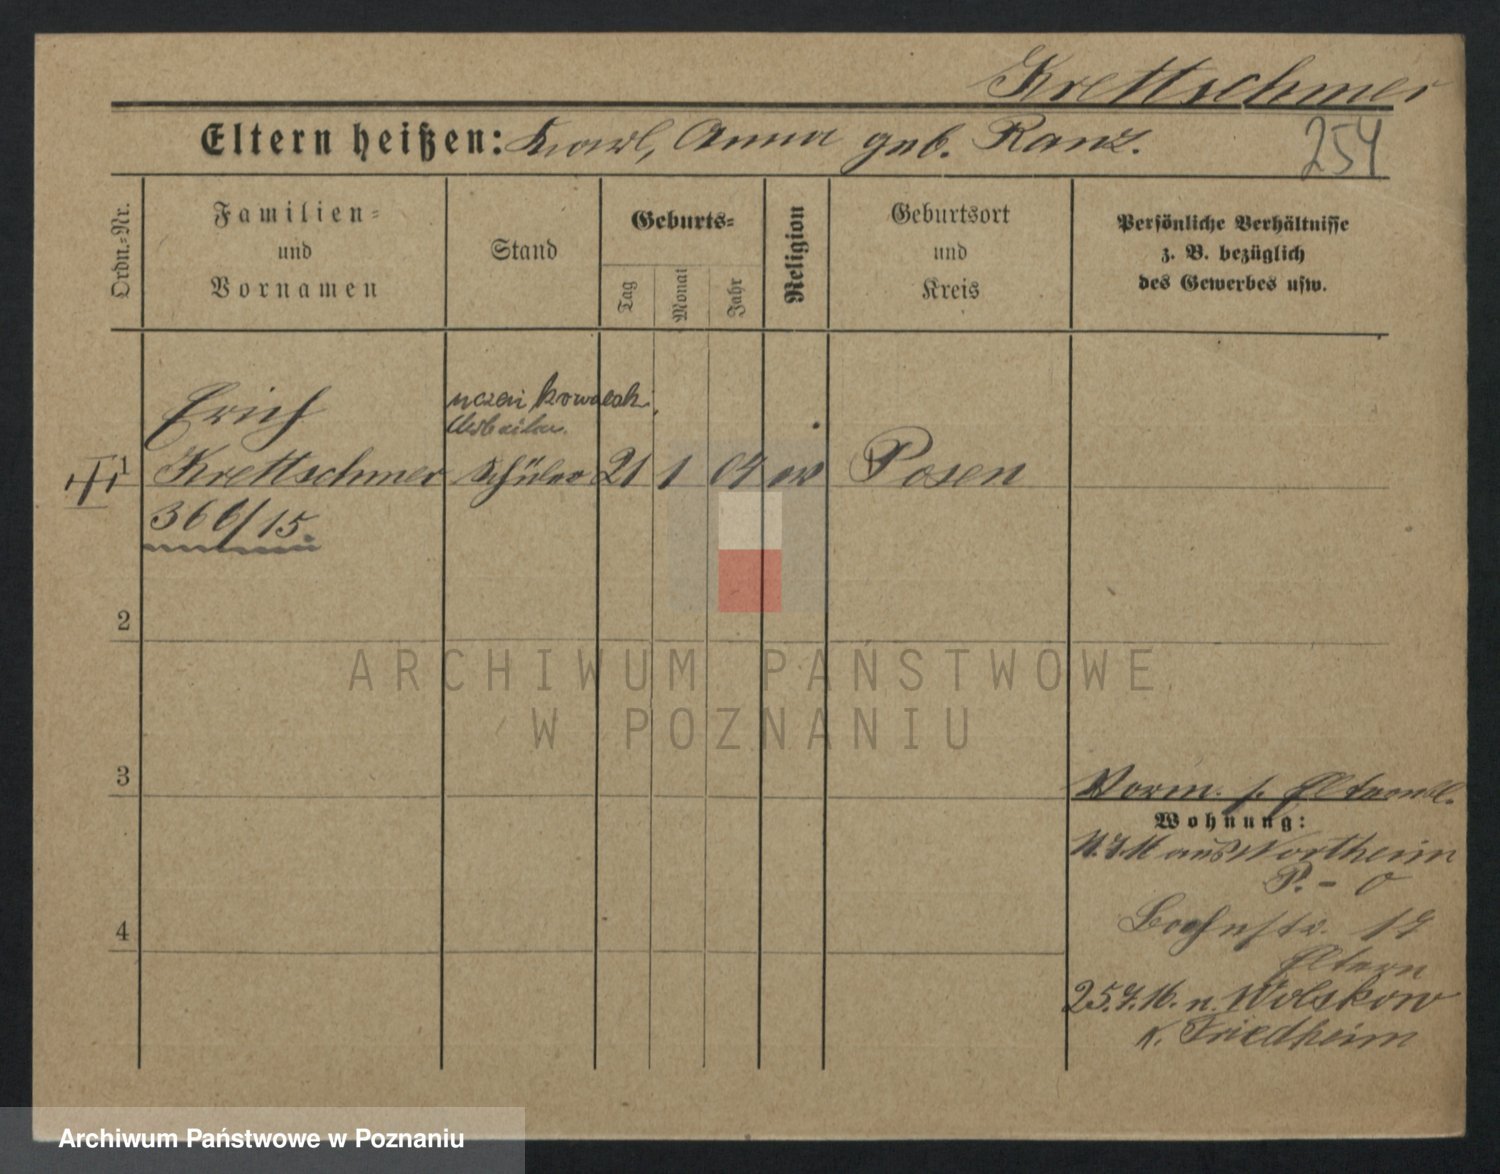 Krettschmer
Eltern heißen: Karl, Anna geb. Ranz.
254
Ordn.=Nr.
Familien=
und
Vornamen
Stand
Geburts=
Tag
Monat
Jahr
Religion
Geburtsort
und
Kreis
Persönliche Verhältnisse
z. B. bezüglich
des Gewerbes usw.
Erich
uczeń kowalsk.
Arbeiter.
1 Krettschmer Schüler 21 1 04 ev Posen
366/15.
2
ARCHIWUM PAŃSTWOWE
W POZNANIU
3
Vorm. s.
Wohnung:
aus Northeim
P. - O
4
str. 17
Eltern
25.7.16. n. Wolskow
K. Friedheim
Archiwum Państwowe w Poznaniu